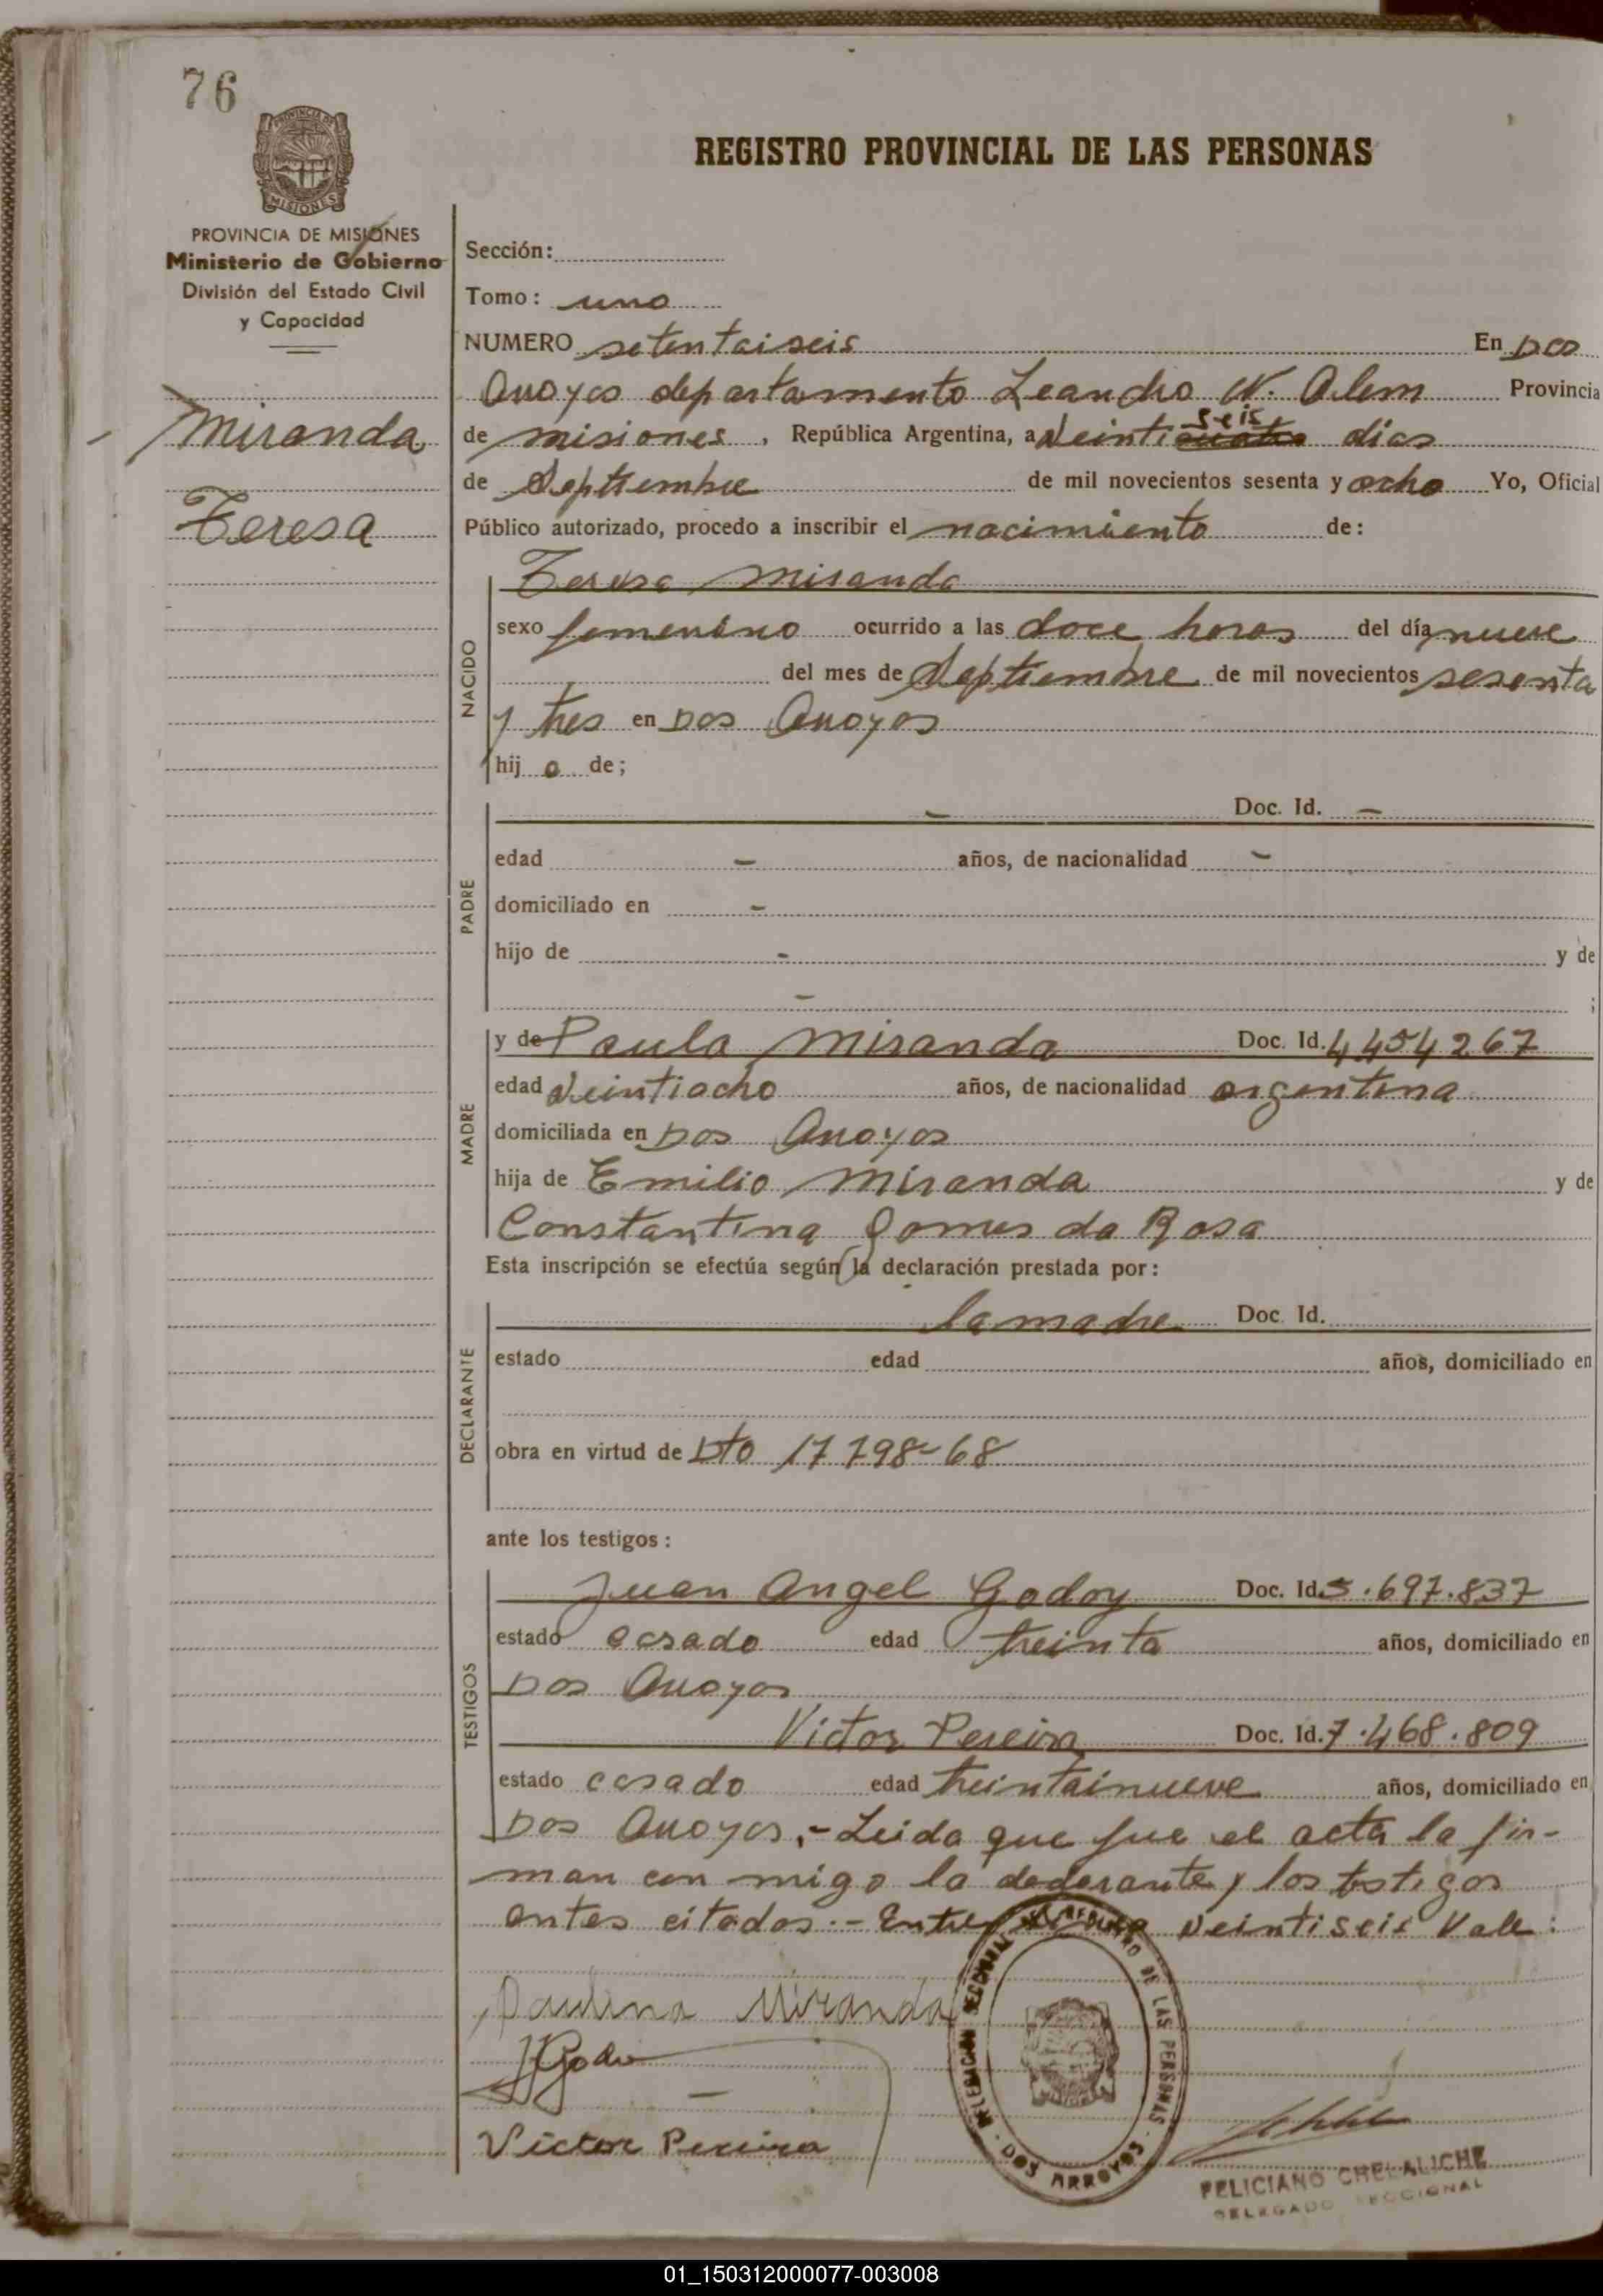 76
PROVINCIA DE
MISIONES
REGISTRO PROVINCIAL DE LAS PERSONAS
PROVINCIA DE MISIONES
Ministerio de Gobierno
División del Estado Civil
y Capacidad
Miranda
Teresa
Sección:
Tomo: uno
NUMERO setentaiseis En Dos
Arroyos departamento Leandro N. Alem Provincia
seis
de misiones, República Argentina, a Veinticuatro dias
de Septiembre de mil novecientos sesenta y ocho Yo, Oficial
Público autorizado, procedo a inscribir el nacimiento de:
NACIDO
Teresa Miranda
sexo femenino ocurrido a las doce horas del día nueve
del mes de Septiembre de mil novecientos sesenta
y tres en Dos Arroyos
hij a de;
PADRE
- Doc. Id. -
edad - años, de nacionalidad -
domiciliado en -
hijo de - y de
- ;
MADRE
y de Paula Miranda Doc. Id. 4454267
edad Veintiocho años, de nacionalidad argentina
domiciliada en Dos Arroyos
hija de Emilio Miranda y de
Constantina Gomes da Rosa
Esta inscripción se efectúa según la declaración prestada por:
DECLARANTE
la madre Doc. Id.
estado edad años, domiciliado en
obra en virtud de Dto 17798-68
ante los testigos:
TESTIGOS
Juan Angel Godoy Doc. Id. 5.697.837
estado casado edad treinta años, domiciliado en
Dos Arroyos
Victor Pereira Doc. Id. 7.468.809
estado casado edad treintainueve años, domiciliado en
Dos Arroyos.- Leida que fue el acta la fir-
man con migo la declarante y los testigos
antes citados.- Entre Veintiseis Vale:
Paulina Miranda
Victor Pereira
DELEGACION SECCIONAL DEL REGISTRO DE LAS PERSONAS
· DOS ARROYOS ·
FELICIANO CHELALICHE
DELEGADO SECCIONAL
01_150312000077-003008